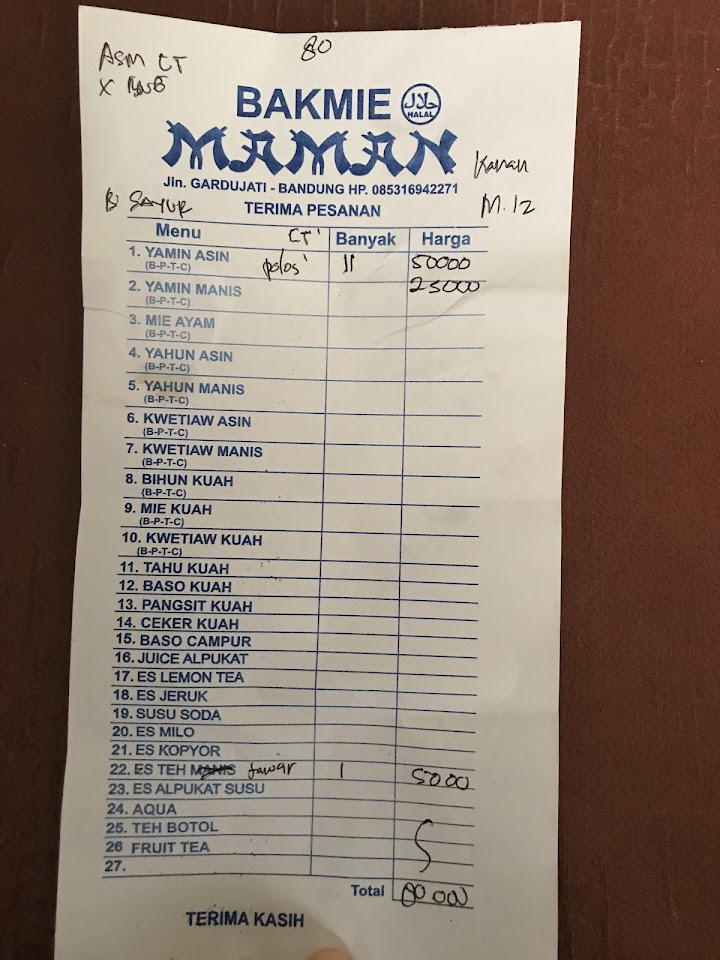 80
ASM CT
BAKMIE
حلال
HALAL
MAMAN
Kanan
Jln. GARDUJATI - BANDUNG HP. 085316942271
B SAYUR TERIMA PESANAN M.12
Menu CT' Banyak Harga
1. YAMIN ASIN polos' II 50000
(B-P-T-C)
2. YAMIN MANIS 25000
(B-P-T-C)
3. MIE AYAM
(B-P-T-C)
4. YAHUN ASIN
(B-P-T-C)
5. YAHUN MANIS
(B-P-T-C)
6. KWETIAW ASIN
(B-P-T-C)
7. KWETIAW MANIS
(B-P-T-C)
8. BIHUN KUAH
(B-P-T-C)
9. MIE KUAH
(B-P-T-C)
10. KWETIAW KUAH
(B-P-T-C)
11. TAHU KUAH
12. BASO KUAH
13. PANGSIT KUAH
14. CEKER KUAH
15. BASO CAMPUR
16. JUICE ALPUKAT
17. ES LEMON TEA
18. ES JERUK
19. SUSU SODA
20. ES MILO
21. ES KOPYOR
22. ES TEH MANIS tawar 1 5000
23. ES ALPUKAT SUSU
24. AQUA
25. TEH BOTOL
26 FRUIT TEA
27.
Total 80 000
TERIMA KASIH